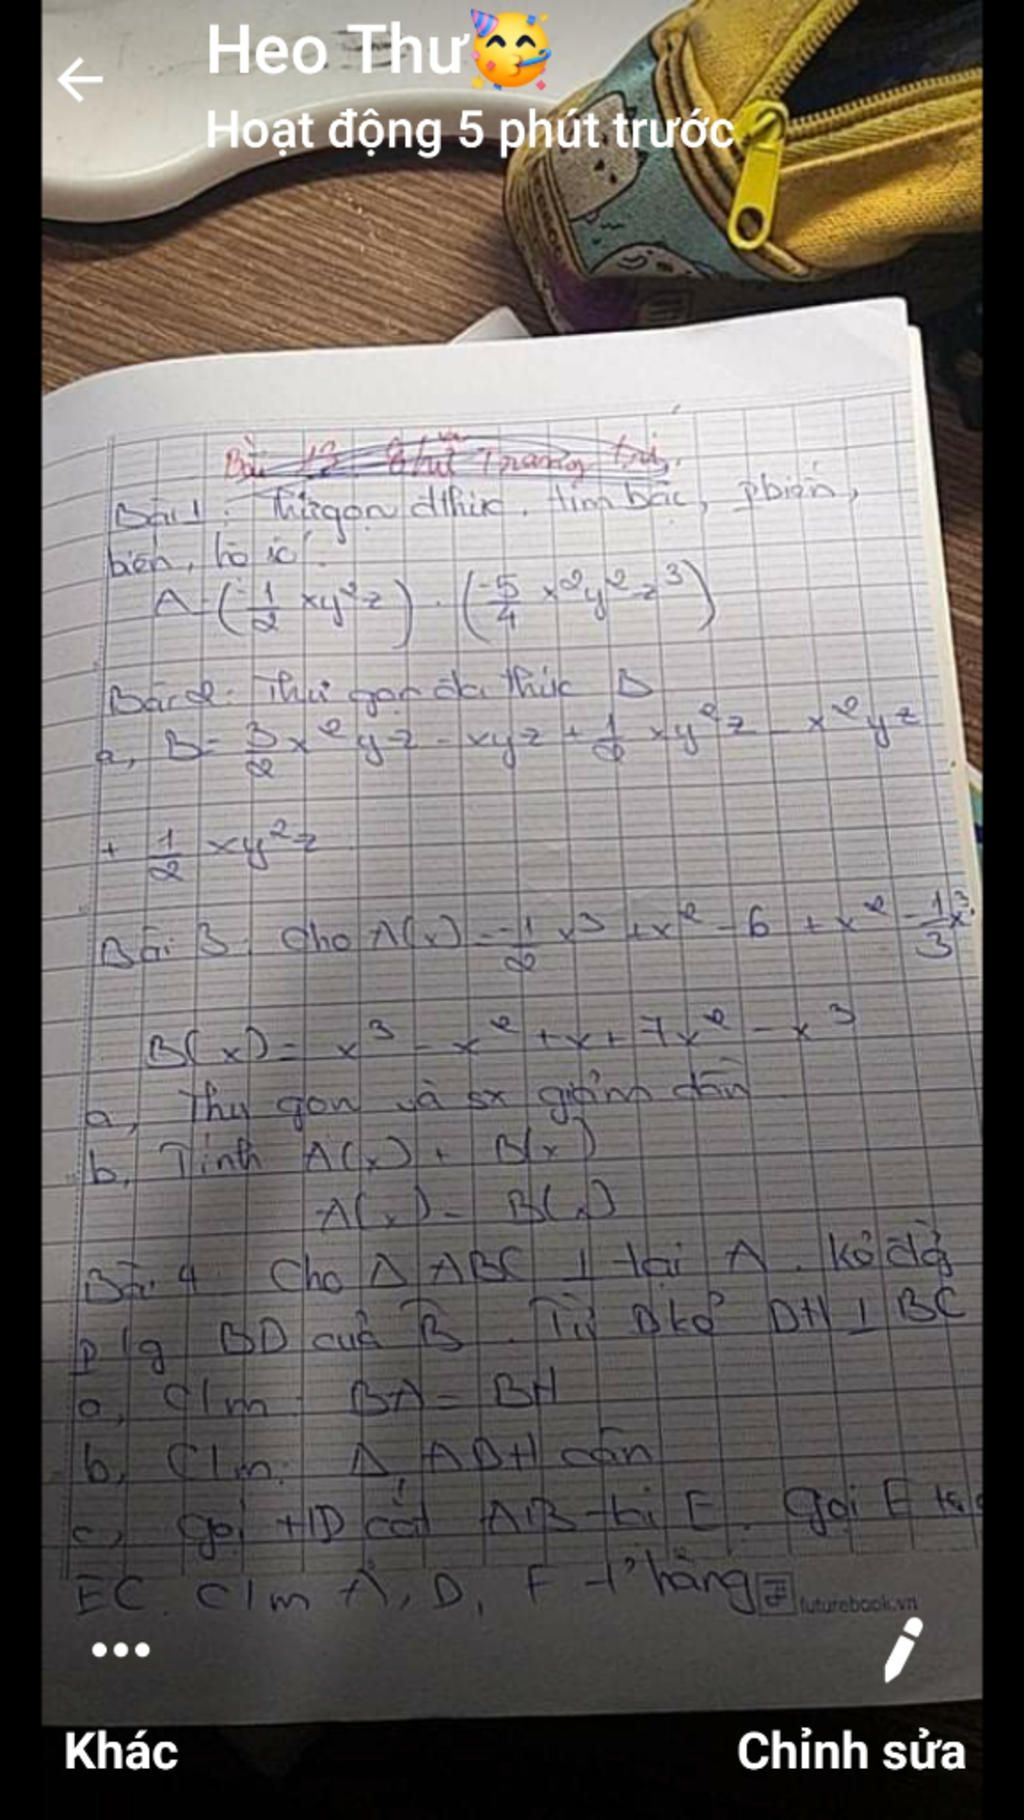 Heo Thư🥳
Hoạt động 5 phút trước
Bài 13
Bài 1: Thu gọn đthức, tìm bậc, pbiến,
biến, hệ số
A = (-1/2 xy²z) . (-5/4 x²y²z³)
Bài 2: Thu gọn đa thức
a, B = 3/2 x²yz - xyz + 1/2 xy²z - x²yz
+ 1/2 xy²z
Bài 3. Cho A(x) = -1/2 x³ + x² - 6 + x² - 1/3 x³
B(x) = x³ - x² + x + 7x² - x³
a, Thu gọn và sx giảm dần
b, Tính A(x) + B(x)
A(x) - B(x)
Bài 4 Cho Δ ABC ⊥ tại A. Kẻ đg
p/g BD của B̂. Từ D kẻ DH ⊥ BC
a, C/m: BA = BH
b, C/m: Δ ADH cân
c, gọi HD cắt AB tại E. Gọi F
EC. C/m A, D, F thẳng
futurebook.vn
Khác
Chỉnh sửa